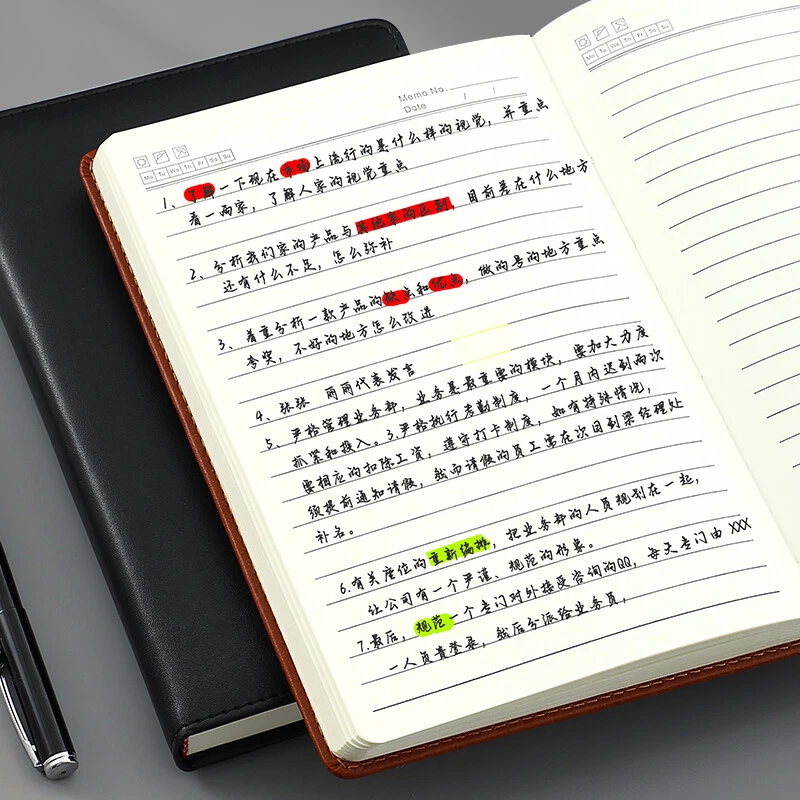 Memo No.
Date / /
Mo Tu We Th Fr Sa Su
1、了解一下现在市场上流行的是什么样的视觉，并重点
看一两家，了解人家的视觉重点
2、分析我们家的产品与其他家的区别，目前差在什么地方
还有什么不足，怎么弥补
3、着重分析一款产品的缺点和优点，做的号的地方重点
夸奖，不好的地方怎么改进
4、张张 丽丽代表发言
5、严格管理业务部，业务是最重要的模块，要加大力度
抓紧和投入。3.严格执行考勤制度，一个月内迟到两次
要相应的扣除工资，遵守打卡制度，如有特殊情况，
须提前通知请假，然而请假的员工需在次回到梁经理处
补名。
6.有关座位的重新编排，把业务部的人员规划在一起，
让公司有一个严谨、规范的形象。
7.最后，规范一个专门对外接受咨询的QQ，每天专门由XXX
一人负责登录，然后分派给业务员，
Mo Tu We Th Fr Sa Su